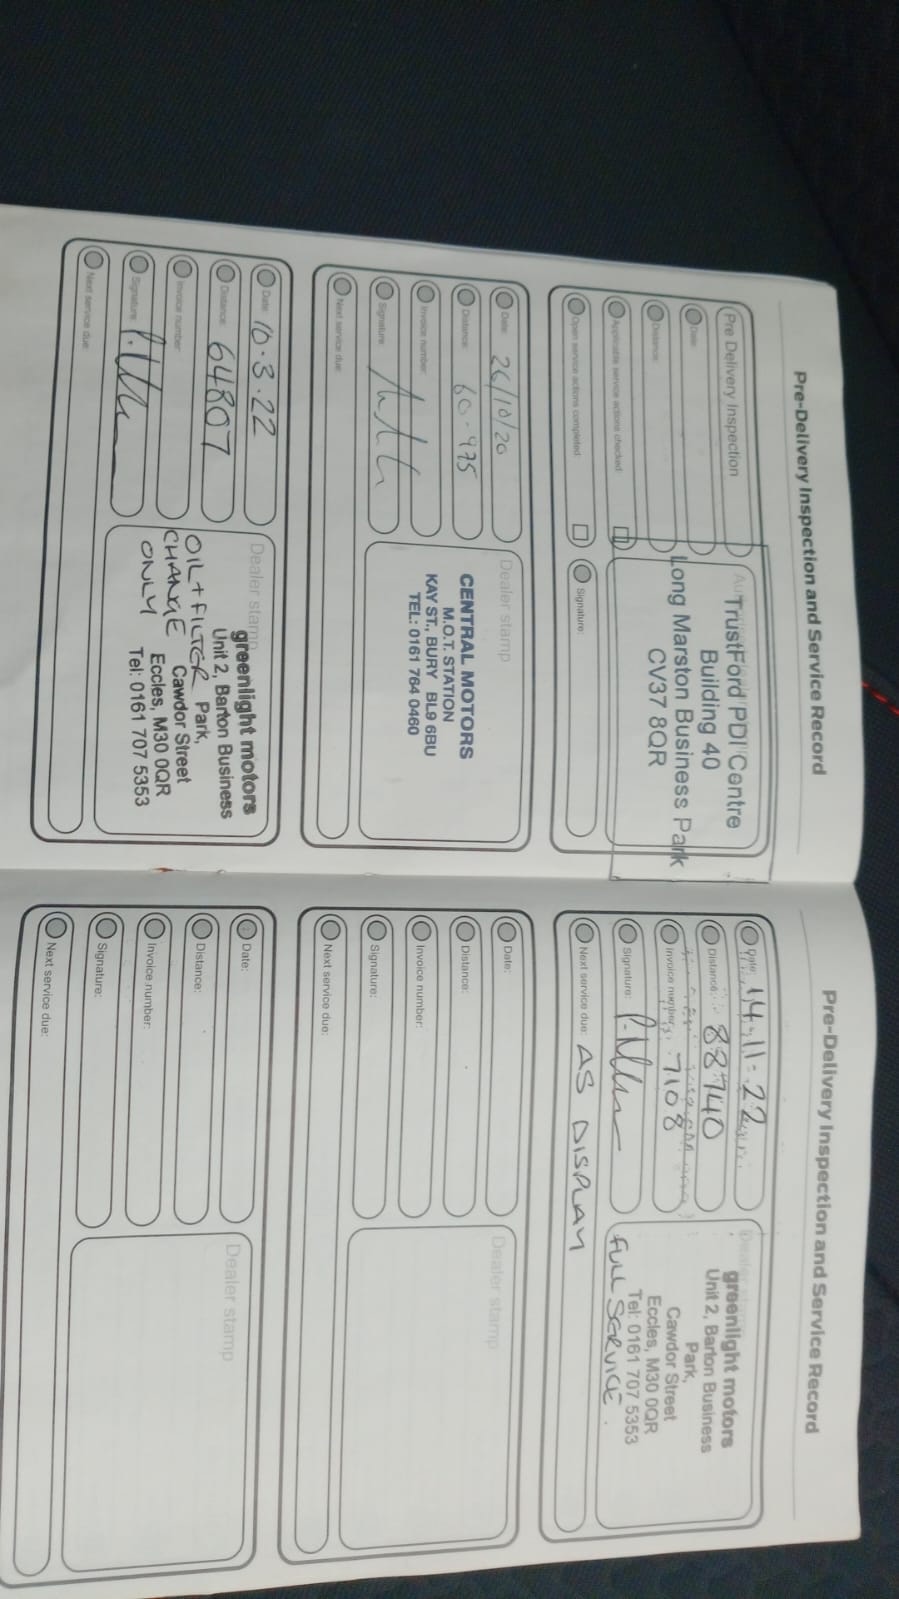 Pre-Delivery Inspection and Service Record
Pre Delivery Inspection
Date:
Distance:
Applicable service actions checked:
Open service actions completed:
Signature:
TrustFord PDI Centre
Building 40
Long Marston Business Park
CV37 8QR
Date: 26/10/20
Distance: 60.975
Invoice number:
Signature:
Next service due:
Dealer stamp
CENTRAL MOTORS
M.O.T. STATION
KAY ST., BURY BL9 6BU
TEL: 0161 764 0460
Date: 10.3.22
Distance: 64807
Invoice number:
Signature:
Next service due:
Dealer stamp
greenlight motors
Unit 2, Barton Business
Park,
Cawdor Street
Eccles, M30 0QR
Tel: 0161 707 5353
OIL + FILTER
CHANGE
ONLY
Pre-Delivery Inspection and Service Record
Date: 14.11.22
Distance: 88740
Invoice number: 7108
Signature:
Next service due: AS DISPLAY
Dealer stamp
greenlight motors
Unit 2, Barton Business
Park,
Cawdor Street
Eccles, M30 0QR
Tel: 0161 707 5353
FULL SERVICE.
Date:
Distance:
Invoice number:
Signature:
Next service due:
Dealer stamp
Date:
Distance:
Invoice number:
Signature:
Next service due:
Dealer stamp